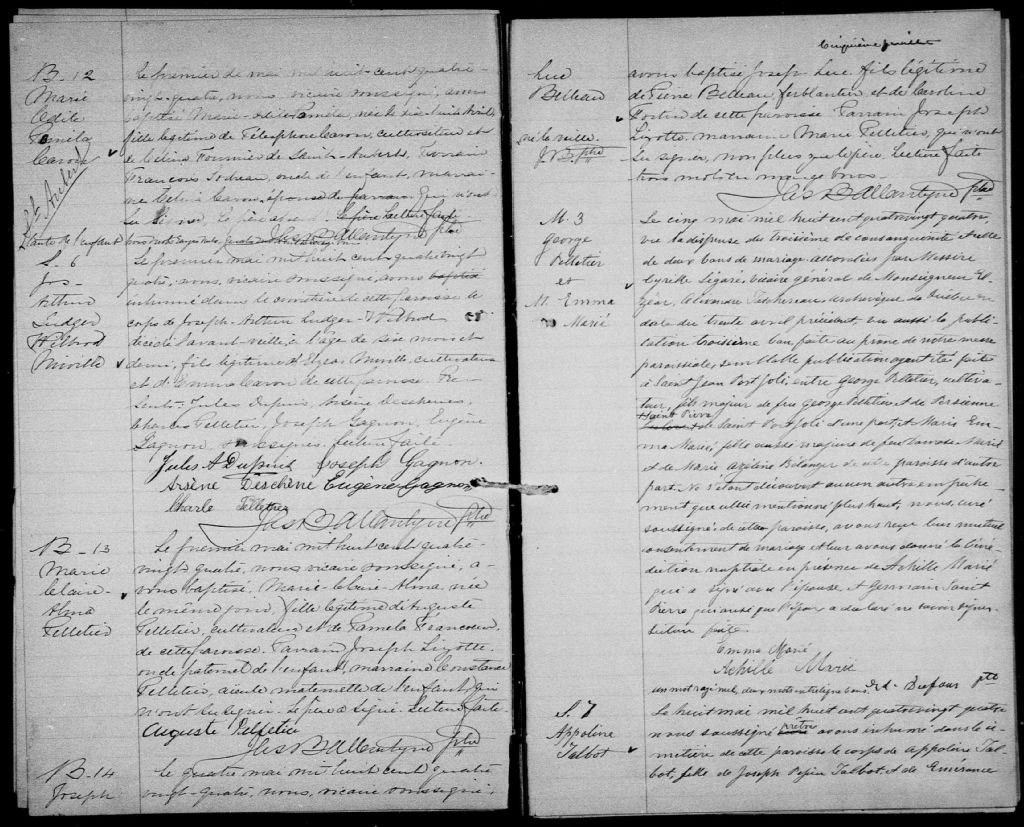 B-12
Marie
Odile
Pamela
Caron
St Aubert
Le premier de mai mil huit-cent-quatre-
vingt-quatre, nous, vicaire soussigné, avons
baptisé Marie-Odile Pamela, née le dix-huit avril,
fille légitime de Télesphore Caron, cultivateur et
de Célina Fournier de Saint-Aubert. Parrain
François Todreau, oncle de l'enfant, marrai-
ne Célina Caron, épouse du parrain qui n'ont
su signer. Le père absent. Lecture faite
tante de l'enfant
Jas Ballantyne ptre
S. 6
Jos-
Arthur
Ludger
Wilbrod
Miville
Le premier mai mil huit cent quatre vingt
quatre, nous, vicaire soussigné, avons baptisé
inhumé dans le cimetière de cette paroisse le
corps de Joseph-Arthur Ludger-Wilbrod
décédé l'avant-veille, à l'age de six mois et
demi, fils légitime d'Elzéar Miville, cultivateur
et d'Emma Caron de cette paroisse. Pré-
sents: Jules Dupuis, Arsène Deschenes,
Charles Pelletier, Joseph Gagnon, Eugène
Gagnon soussignés. Lecture faite.
Jules A Dupuis Joseph Gagnon.
Arsène Deschène Eugène Gagnon
Charle Pelletier
Jas Ballantyne ptre
B-13
Marie
Claire-
Alma
Pelletier
Le premier mai mil huit cent quatre-
vingt-quatre, nous, vicaire soussigné, a-
vons baptisé Marie-Claire-Alma née
le même jour, fille légitime d'Auguste
Pelletier, cultivateur et de Pamela Francoeur
de cette paroisse. Parrain, Joseph Lizotte,
oncle paternel de l'enfant, marraine Constance
Pelletier, aieule maternelle de l'enfant, qui
n'ont su signer. Le père a signé. Lecture faite.
Auguste Pelletier
Jas Ballantyne ptre
B-14
Joseph
Le quatre mai mil huit cent quatre
vingt-quatre, nous, vicaire soussigné,
Cinquième feuillet
Luc
Belleau
né la veille.
J.B. ptre
avons baptisé Joseph Luc, fils légitime
de Pierre Belleau, ferblantier et de Caroline
Fortin de cette paroisse. Parrain Joseph
Lizotte, marraine Marie Pelletier, qui n'ont
su signer, non plus que le père. Lecture faite
trois mots en marge bons.
Jas Ballantyne ptre
M. 3
George
Pelletier
et
M. Emma
Marié
Le cinq mai mil huit cent quatrevingt quatre,
vu la dispense du troisième de consanguinité et celle
de deux bans de mariage accordées par Messire
Cyrille Légaré, vicaire général de Monseigneur El-
zéar, Alexandre Taschereau archevêque de Québec en
date du trente avril précédent, vu aussi la publi-
cation troisième ban faite au prone de notre messe
paroissiale, semblable publication ayant été faite
à Saint Jean Port Joli, entre George Pelletier, cultiva-
teur, fils majeur de feu George Pelletier et de Persienne
Saint Pierre
de Saint Port Joli d'une part, et Marie Em-
ma Marié, fille aussi majeure de feu Marié
et de Marie Azéline Bélanger de cette paroisse d'autre
part. Ne s'étant découvert aucun autre empêche-
ment que celui mentionné plus haut, nous, curé
soussigné de cette paroisse, avons reçu leur mutuel
consentement de mariage et leur avons donné la béné-
diction nuptiale en présence de Achille Marié
qui a signé avec l'épouse, et Germain Saint
Pierre qui ainsi que l'époux a déclaré ne savoir signer
lecture faite.
Emma Marié
Achille Marié
un mot rayé nul, deux mots entreligne bons. Ed. Dufour ptre
S. 7
Appoline
Talbot
Le huit mai mil huit cent quatrevingt quatre
nous soussigné prêtre avons inhumé dans le ci-
metière de cette paroisse le corps de Appoline Tal-
bot, fille de Joseph Pépin Talbot et de Emérance